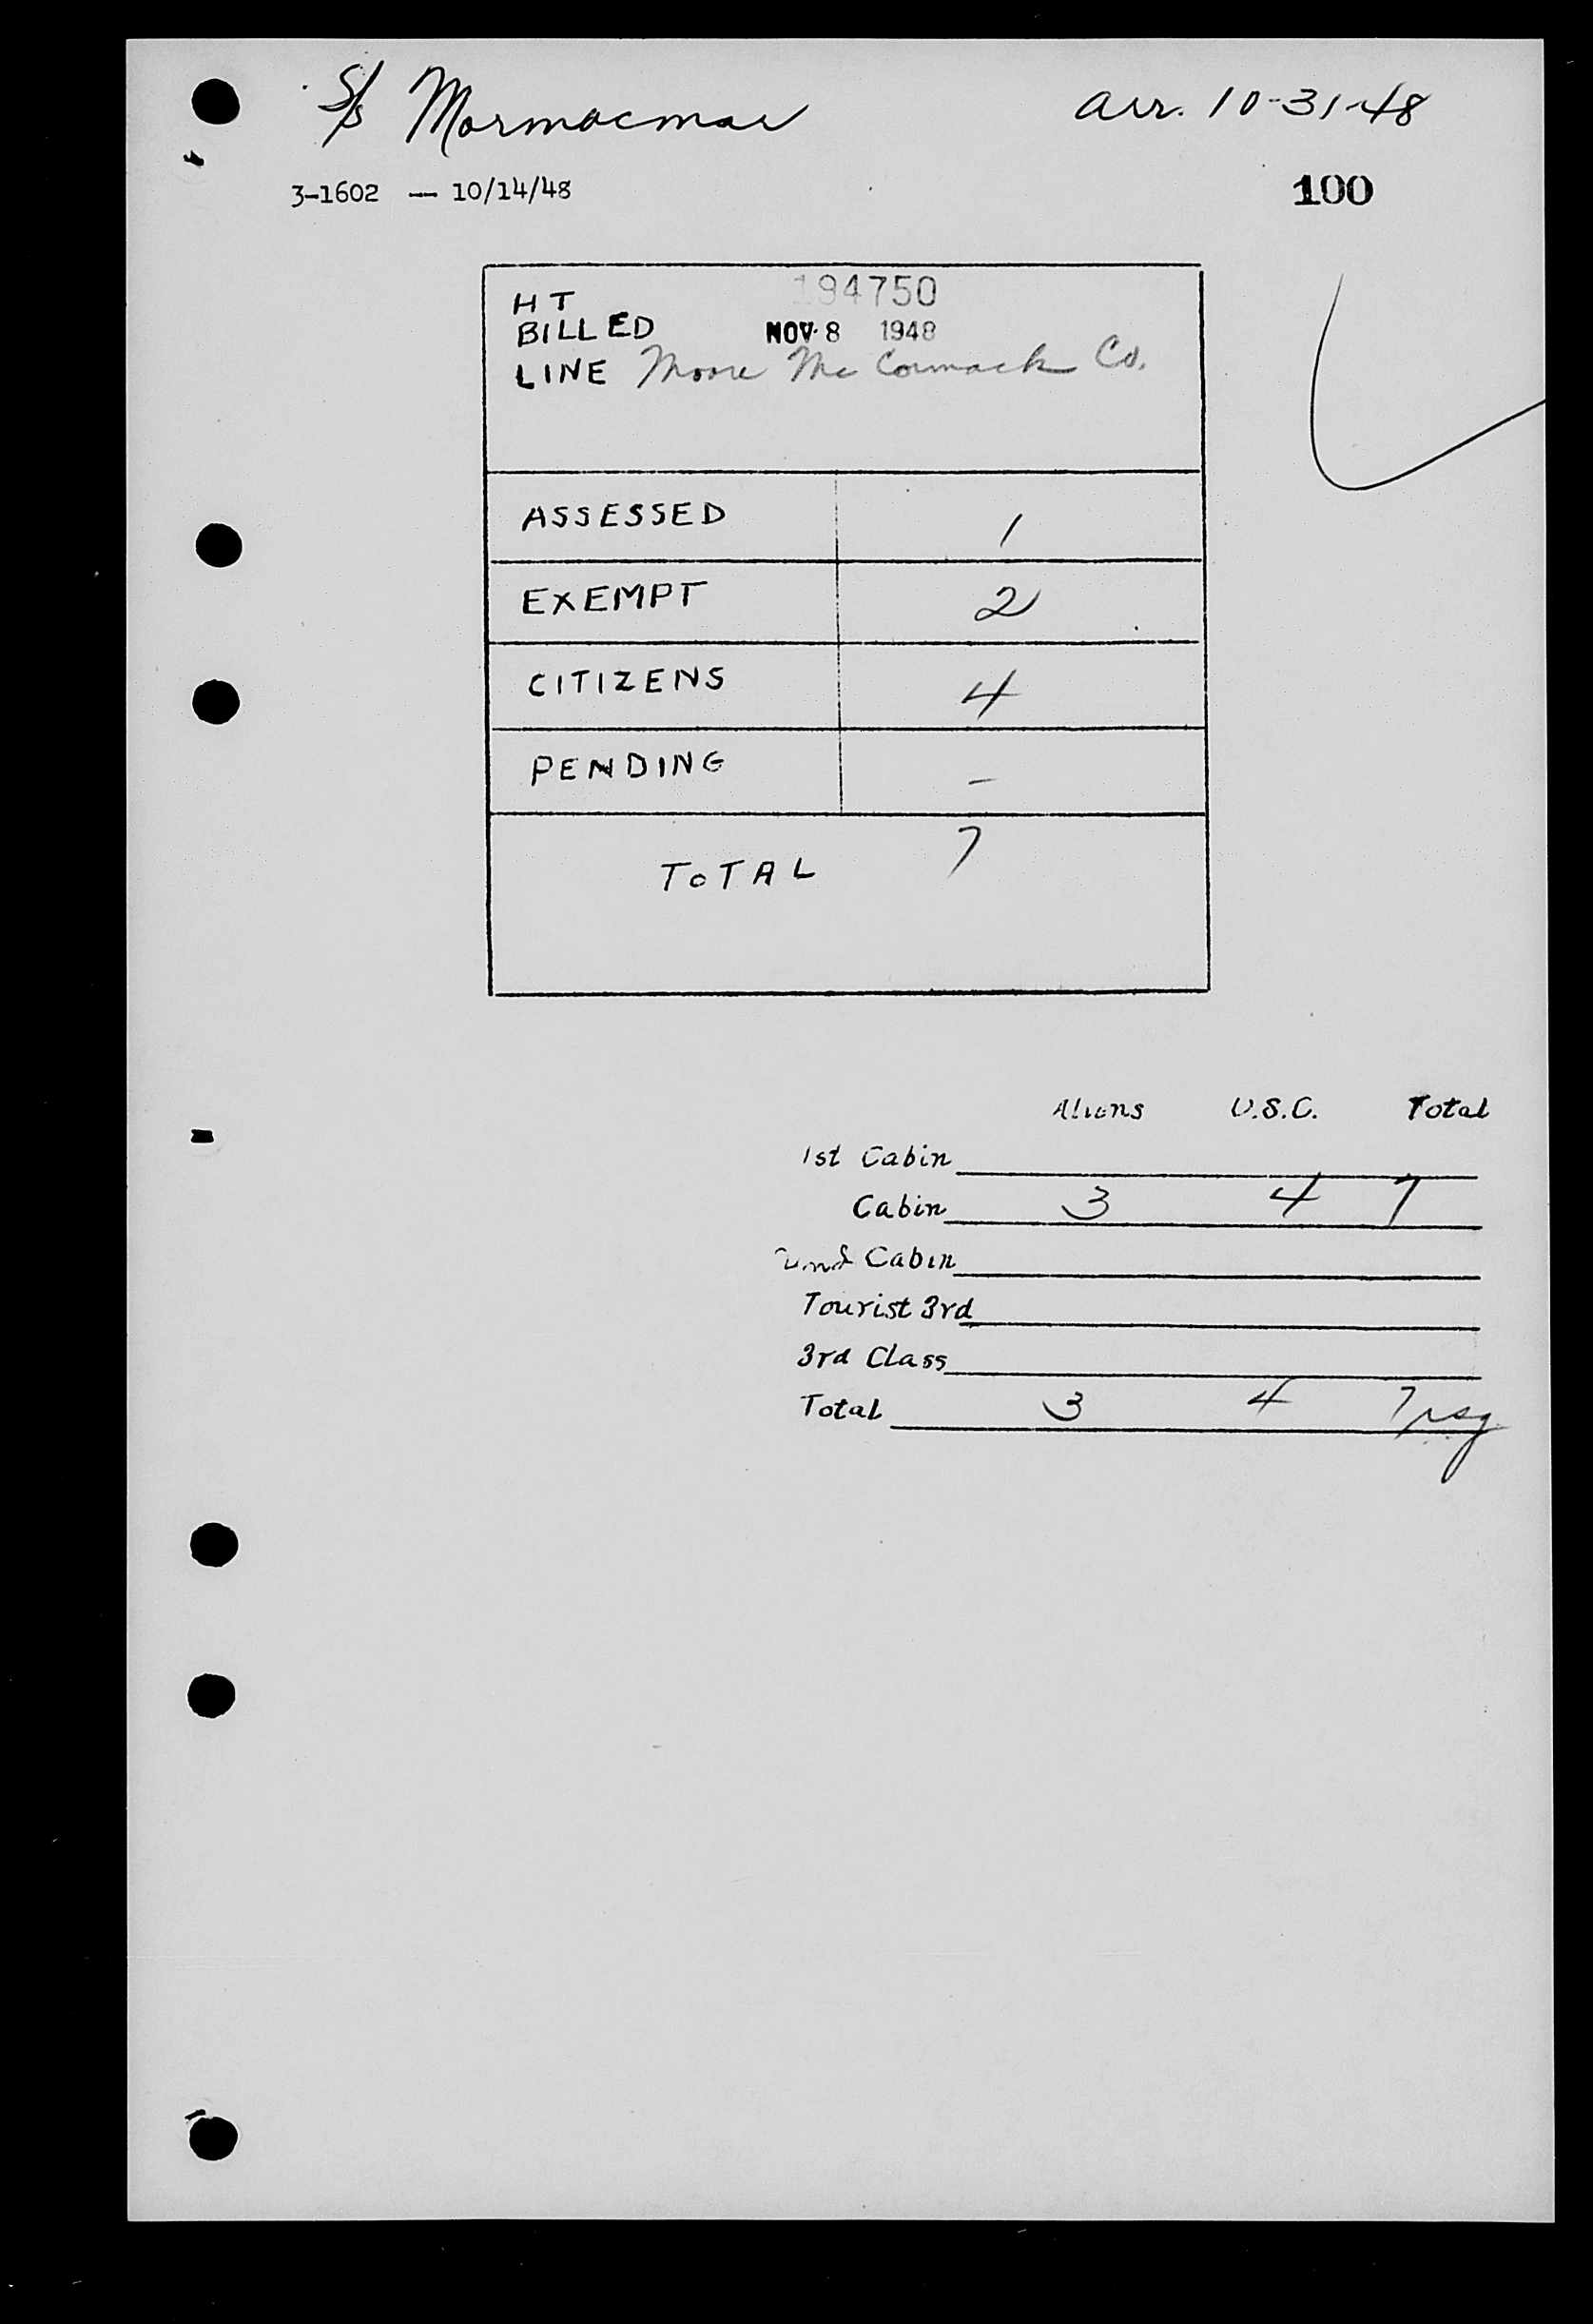 S/S Mormacmar arr. 10-31-48
3-1602 — 10/14/48 100
HT 194750
BILLED NOV 8 1948
LINE Moore McCormack Co.
ASSESSED 1
EXEMPT 2
CITIZENS 4
PENDING –
TOTAL 7
Aliens U.S.C. Total
1st Cabin
Cabin 3 4 7
2nd Cabin
Tourist 3rd
3rd Class
Total 3 4 7 psg